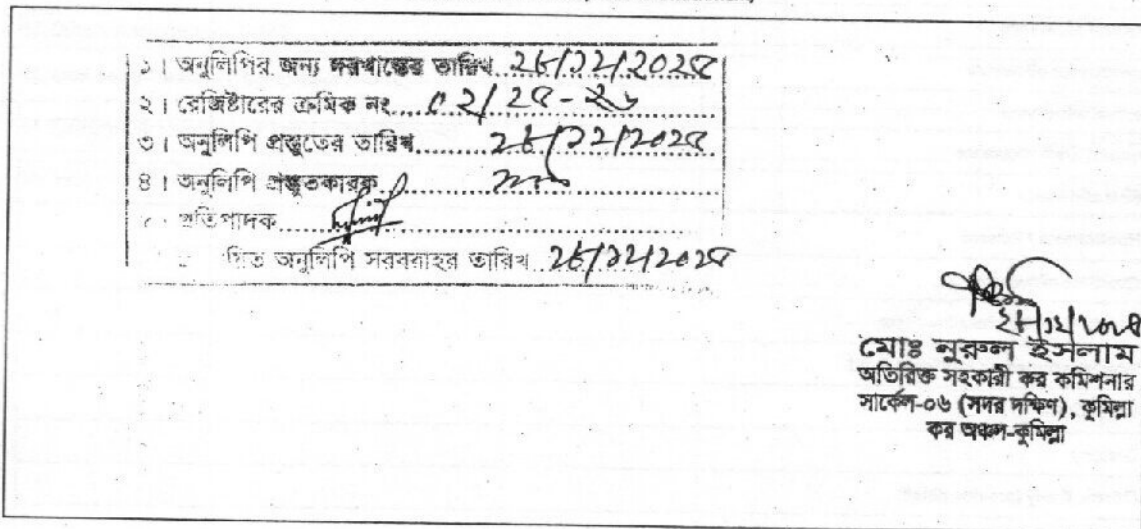 ১। অনুলিপির জন্য দরখাস্তের তারিখ ২৮/১২/২০২৫
২। রেজিষ্টারের ক্রমিক নং ৫২/২৫-২৬
৩। অনুলিপি প্রস্তুতের তারিখ ২৮/১২/২০২৫
৪। অনুলিপি প্রস্তুতকারক
প্রতিপাদক
অনুলিপি সরবরাহর তারিখ ২৮/১২/২০২৫
২৮/১২/২০২৫
মোঃ নুরুল ইসলাম
অতিরিক্ত সহকারী কর কমিশনার
সার্কেল-০৬ (সদর দক্ষিণ), কুমিল্লা
কর অঞ্চল-কুমিল্লা